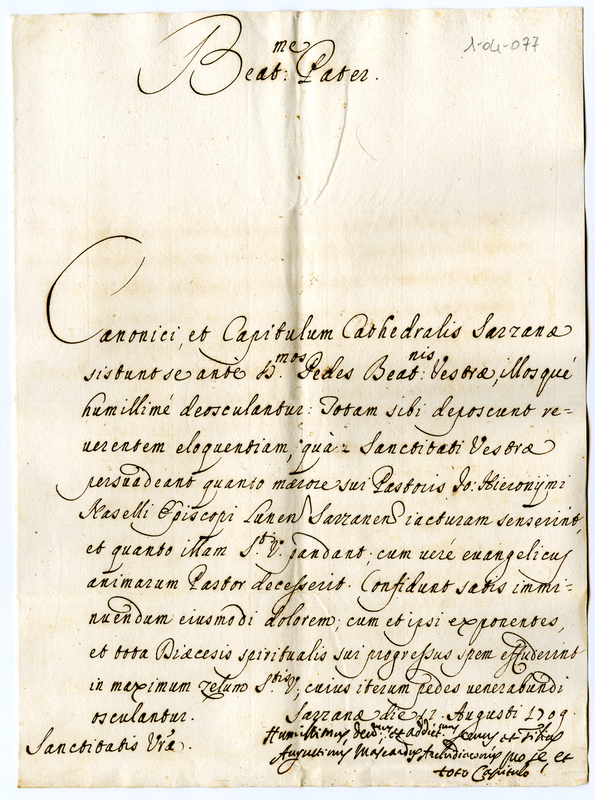 1-04-077
Beat:me Pater.
Canonici, et Capitulum Cathedralis Sarzanæ
sistunt se ante S.mos Pedes Beat:nis Vestræ, illosqué
humillimé deosculantur: Totam sibi deposcunt re=
uerentem eloquentiam, quà Sanctitati Vestræ
persuadeant quanto mærore sui Pastoris Jo: Hieronymi
Naselli Episcopi Lunen Sarzanen iacturam senserint,
et quanto illam S.ti V. pandant; cum veré evangelicus
animarum Pastor decesserit. Confidunt satis immi=
nuendum eiusmodi dolorem; cum et ipsi exponentes,
et tota Diæcesis spiritualis sui progressus spem effuderint
in maximum zelum S.tis V., cuius iterum pedes venerabundi
osculantur. Sarzanæ die 17. Augusti 1709.
Sanctitatis Vræ
Humillimus et addict. servus et Filius
Augustinus Mascardus Archidiaconus pro se, et
toto Capitulo